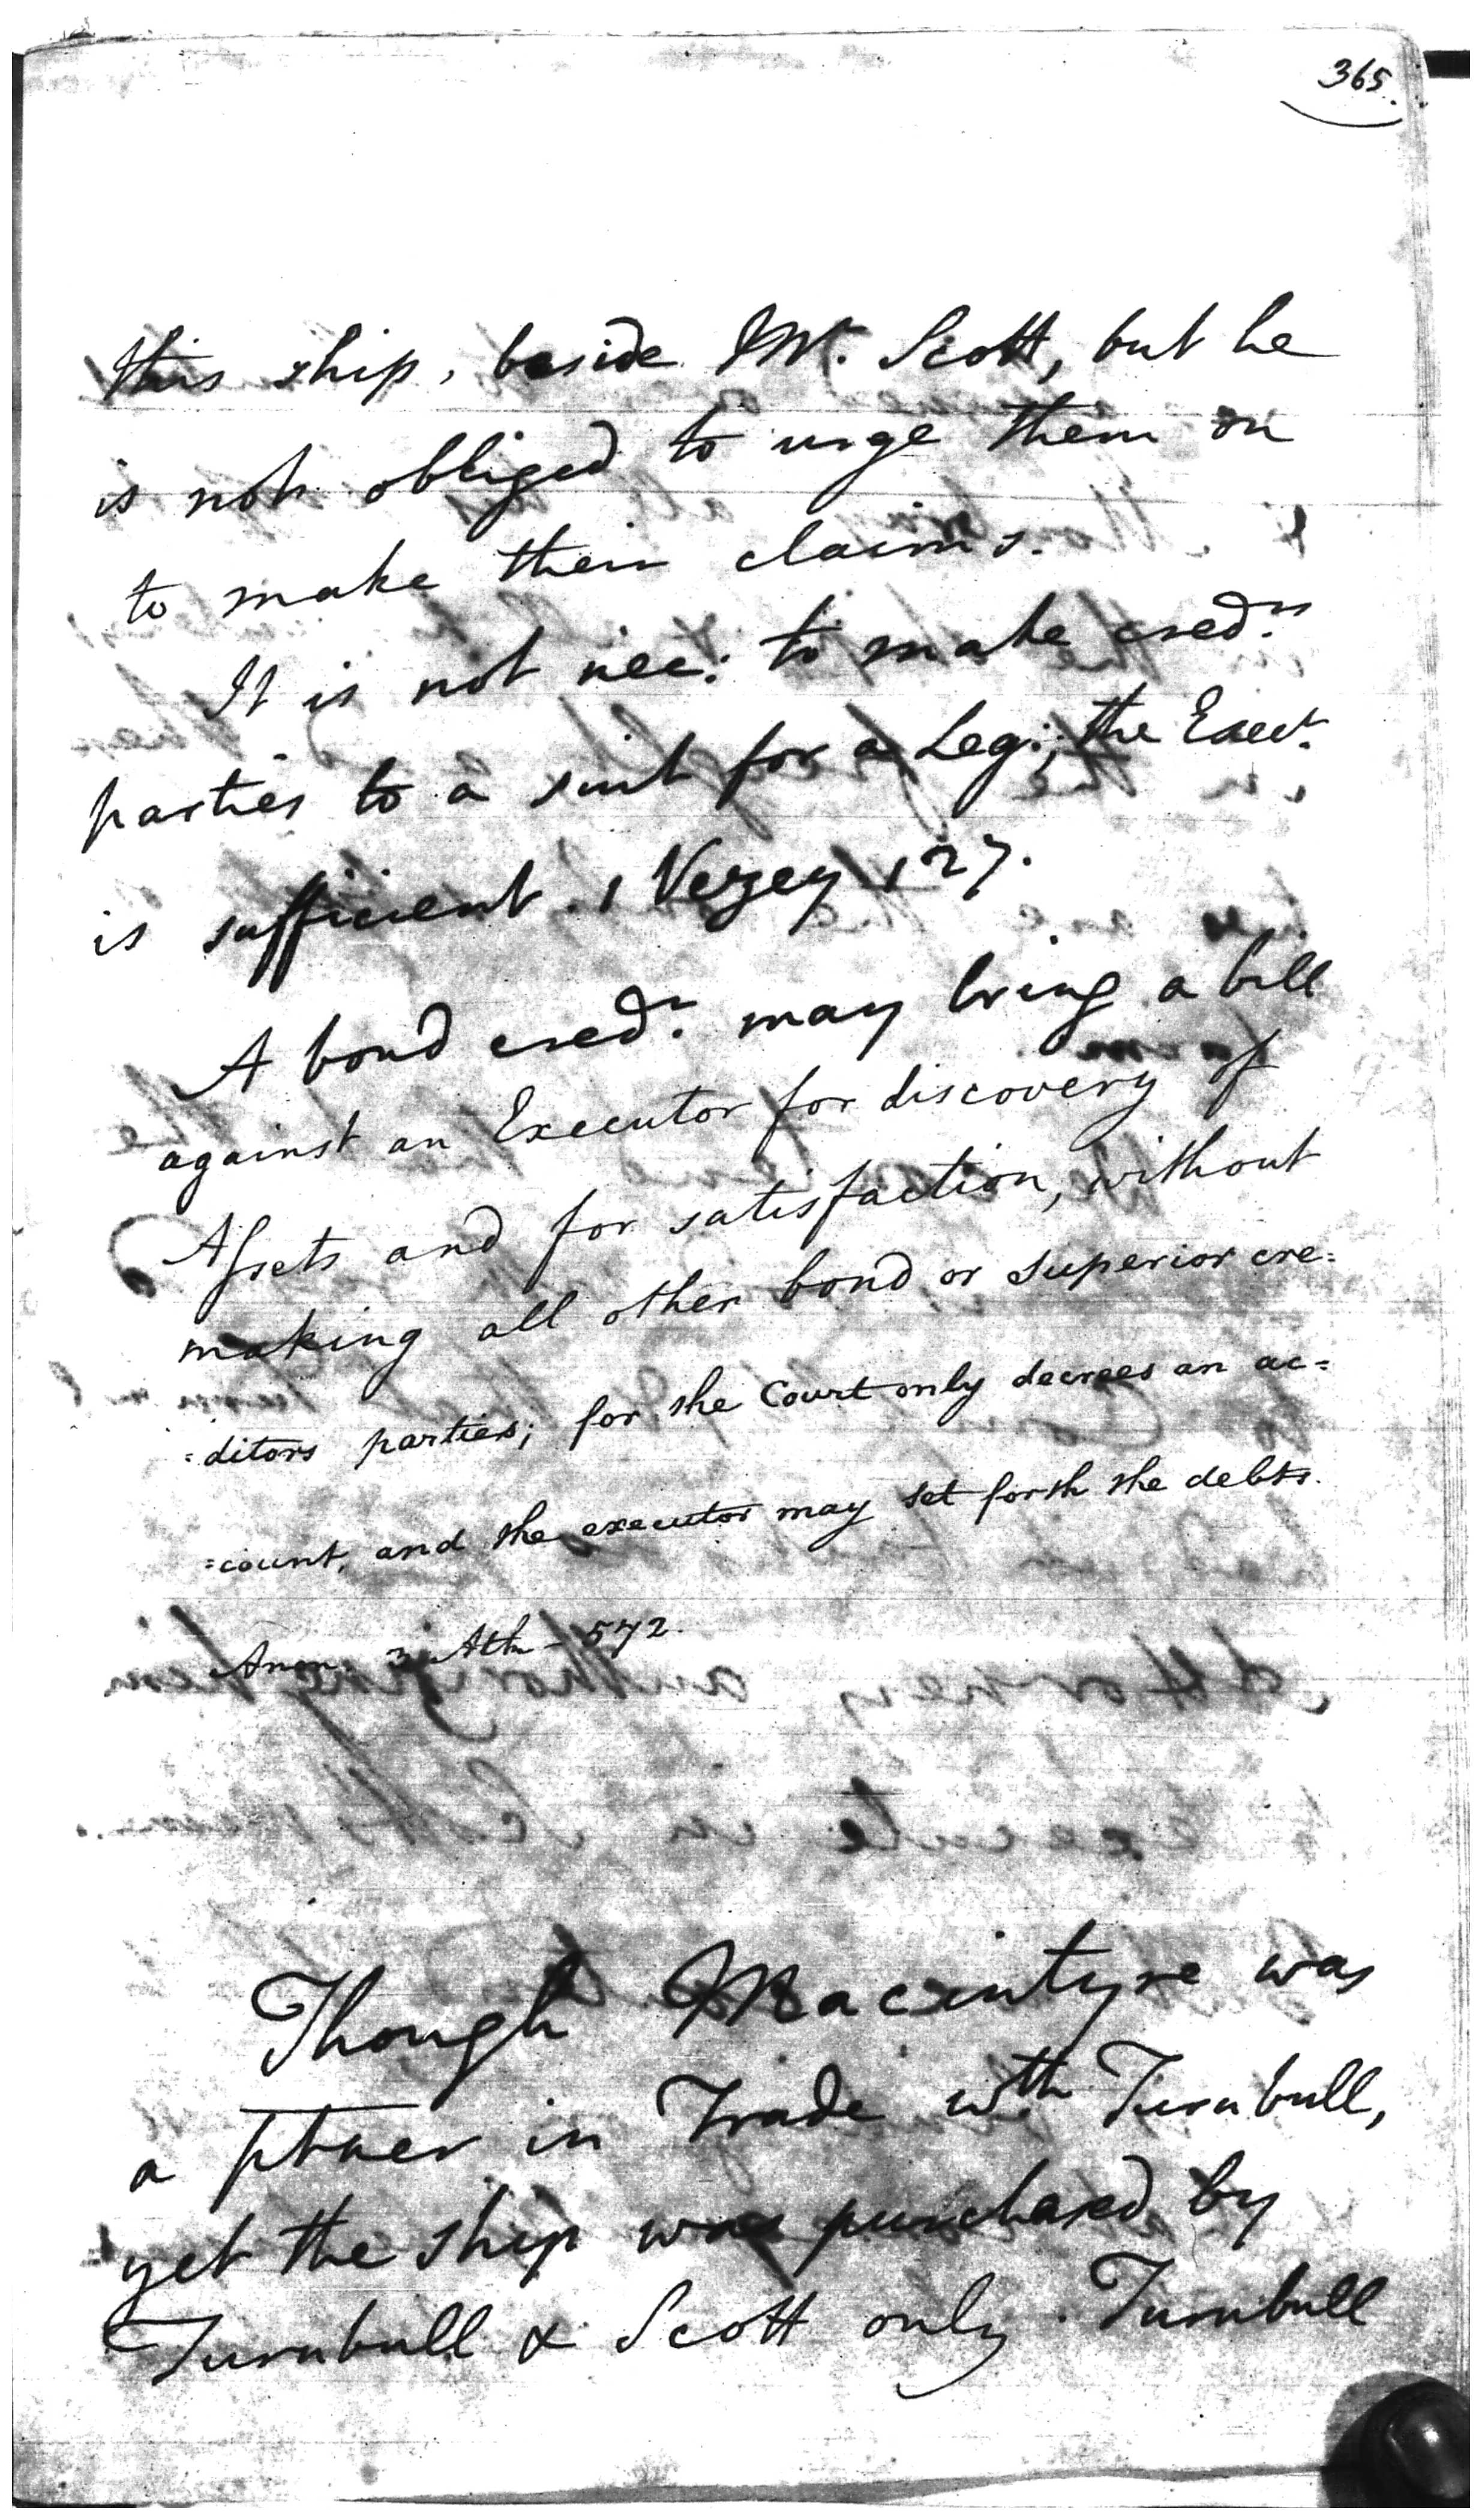 365.
this ship, beside Mr. Scott, but he
is not obliged to urge them on
to make their claims.
It is not nec: to make credrs
parties to a suit for a Leg:; the Exect.
is sufficient. 1 Vezey 127.
A bond credr. may bring a bill
against an Executor for discovery of
Assets and for satisfaction, without
making all other bond or superior cre=
=ditors parties; for the Court only decrees an ac=
=count, and the executor may set forth the debts.
Anon: 3 Atk - 572.
Though Macintyre was
a ptner in Trade wth Turnbull,
yet the ship was purchased by
Turnbull & Scott only. Turnbull